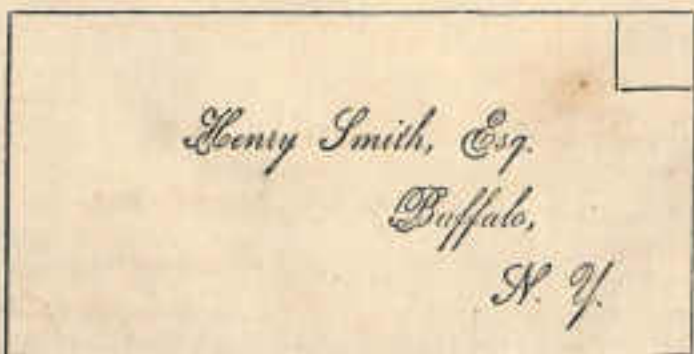 Henry Smith, Esq.
Buffalo,
N. Y.